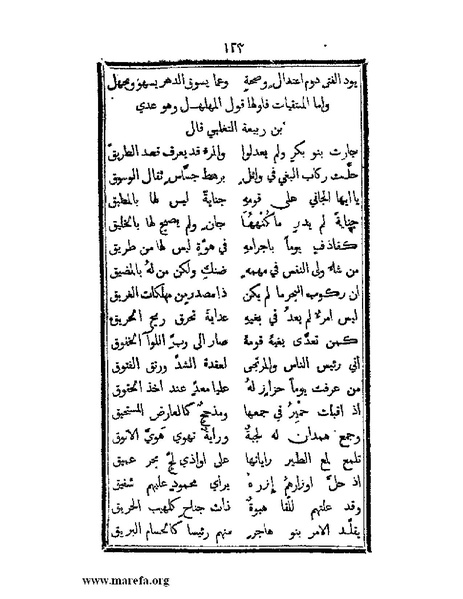 ١٢٣
يود الفتى دوم اعتدال وصحة وعما يسوق الدهر يسهو ويجهل
واما المنتقيات فاولها قول المهلهل وهو عدي
بن ربيعة التغلبي قال
جارت بنو بكرٍ ولم يعدلوا والمرء قد يعرف قصد الطريق
حلّت ركاب البغي في وائل برهط جسّاس ثقال الوسوق
يا ايها الجاني على قومهِ جنايةً ليس لها بالمطيق
جنايةً لم يدرِ ما كُنْهُهَا جانٍ ولم يصبح لها بالخليق
كقاذفٍ يوماً باجرامهِ في هوّةٍ ليس لها من طريق
من شاء ولى النفس في مهمهِ ضنكٍ ولكن من لهُ بالمضيق
ان ركوب البحر ما لم يكن ذا مصدرٍ من مهلكات الغريق
ليس امرءٌ لم يعدُ في بغيهِ عداية تخرق ريح الحريق
كمن تعدّى بغيهُ قومهُ صار الى ربّ اللوآءِ الخفوق
الى رئيس الناس والمرتجى لعقدة الشدّ ورتق الفتوق
من عرفت يوماً حزاز لهُ عليا معدّ عند اخذ الحقوق
اذ اقبلت حميرُ في جمعها ومذحجٌ كالعارض المستحيق
وجمع همدان له لجبةٌ ورايةٌ تهوي هَوِيّ الانوق
تلمع لمع الطير راياتها على اواذي لجّ بحرٍ عميق
اذ حلّ اوزارهم إزرهُ براي محمودٍ عليهم شفيق
وقد علتهم للقا هبوةٌ ذات جناحٍ كلهيب الحريق
يقلّد الامر بنو هاجرٍ منهم رئيسا كالحسام البريق
www.marefa.org